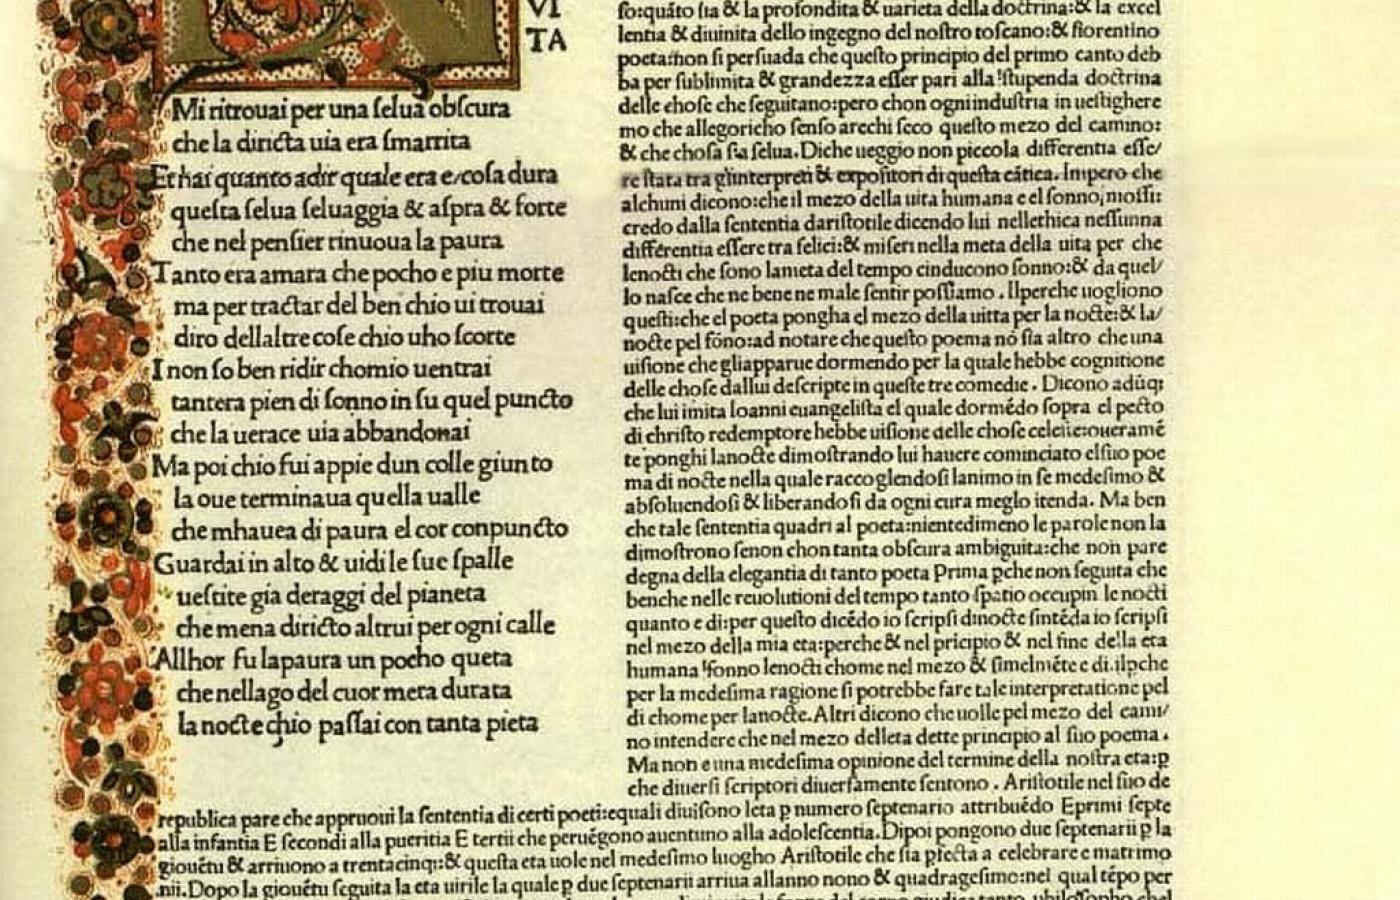 VI
TA
Mi ritrouai per una ſelua obſcura
che la diricta uia era ſmarrita
Et hai quanto adir quale era e/coſa dura
queſta ſelua ſeluaggia & aſpra & forte
che nel penſier rinuoua la paura
Tanto era amara che pocho e piu morte
ma per tractar del ben chio ui trouai
diro dellaltre coſe chio uho ſcorte
I non ſo ben ridir chomio uentrai
tantera pien di ſonno in ſu quel puncto
che la uerace uia abbandonai
Ma poi chio fui appie dun colle giunto
la oue terminaua quella ualle
che mhauea di paura el cor conpuncto
Guardai in alto & uidi le ſue ſpalle
ueſtite gia deraggi del pianeta
che mena diricto altrui per ogni calle
Allhor fu lapaura un pocho queta
che nellago del cuor mera durata
la nocte chio paſſai con tanta pieta
ſo:quáto ſia & la profondita & uarieta della doctrina:& la excel
lentia & diuinita dello ingegno del noſtro toſcano:& fiorentino
poeta:non ſi perſuada che queſto principio del primo canto deb
ba per ſublimita & grandezza eſſer pari alla ſtupenda doctrina
delle choſe che ſeguitano:pero chon ogni induſtria in ueſtighere
mo che allegoricho ſenſo arechi ſeco queſto mezo del camino:
& che choſa ſia ſelua.Diche ueggio non piccola differentia eſſe/
re ſtata tra glinterpreti & expoſitori di queſta cática.Impero che
alchuni dicono:che il mezo della uita humana e el ſonno,moſſi:
credo dalla ſententia dariſtotile dicendo lui nellethica neſſunna
differentia eſſere tra felici:& miſeri nella meta della uita per che
lenocti che ſono lameta del tempo cinducono ſonno:& da quel/
lo naſce che ne bene ne male ſentir poſſiamo.Ilperche uogliono
queſti:che el poeta pongha el mezo della uitta per la nocte:& la/
nocte pel ſóno:ad notare che queſto poema nó ſia altro che una
uiſione che gliapparue dormendo per la quale hebbe cognitione
delle choſe dallui deſcripte in queſte tre comedie. Dicono adúq;
che lui imita Ioanni euangeliſta el quale dormédo ſopra el pecto
di chriſto redemptore hebbe uiſione delle choſe celeſte:oueramé
te ponghi lanocte dimoſtrando lui hauere cominciato elſuo poe
ma di nocte nella quale raccoglendoſi lanimo in ſe medeſimo &
abſoluendoſi & liberandoſi da ogni cura meglo itenda. Ma ben
che tale ſententia quadri al poeta:nientedimeno le parole non la
dimoſtrono ſenon chon tanta obſcura ambiguita:che non pare
degna della elegantia di tanto poeta Prima pche non ſeguita che
benche nelle reuolutioni del tempo tanto ſpatio occupin le nocti
quanto e di:per queſto dicédo io ſcripſi dinocte ſintéda io ſcripſi
nel mezo della mia eta:perche & nel pricipio & nel fine della eta
humana ſonno lenocti chome nel mezo & ſimelméte e di.ilpche
per la medeſima ragione ſi potrebbe fare tale interpretatione pel
di chome per lanocte.Altri dicono che uolle pel mezo del cami/
no intendere che nel mezo delleta dette principio al ſuo poema.
Ma non e una medeſima opinione del termine della noſtra eta:p
che diuerſi ſcriptori diuerſamente ſentono. Ariſtotile nel ſuo de
republica pare che appruoui la ſententia di certi poeti:equali diuiſono leta p numero ſeptenario attribuédo Eprimi ſepte
alla infantia E ſecondi alla pueritia E tertii che peruégono auentuno alla adoleſcentia.Dipoi pongono due ſeptenarii p la
giouétu & arriuono a trentacinq;:& queſta eta uole nel medeſimo luogho Ariſtotile che ſia pfecta a celebrare e matrimo
nii.Dopo la giouétu ſeguita la eta uirile la quale p due ſeptenarii arriua allanno nono & quadrageſimo:nel qual tépo per